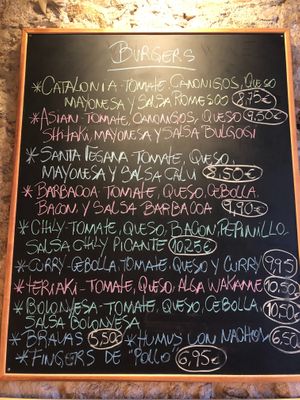 BURGERS
*CATALONIA-TOMATE, CANONIGOS, QUESO
MAYONESA Y SALSA ROMESCO 8,75€
*ASIAN-TOMATE, CANONIGOS, QUESO 9,50€
SHITAKI, MAYONESA Y SALSA BULGOGI
*SANTA VEGANA TOMATE, QUESO,
MAYONESA Y SALSA 8,50€
*BARBACOA-TOMATE, QUESO, CEBOLLA,
BACON, Y SALSA BARBACOA 9,90€
*CHILY-TOMATE, QUESO, BACON PEPINILLO
SALSA CHILY PICANTE 10,25€
*CURRY-CEBOLLA, TOMATE, QUESO Y CURRY 9,95
*TERIAKI-TOMATE, QUESO, ALGA WAKAME 10,50
*BOLONYESA-TOMATE, QUESO, CEBOLLA
SALSA BOLONYESA 10,50€
*BRAVAS 5,50€ *HUMUS CON NACHOS 6,50
*FINGERS DE "POLLO" 6,95€